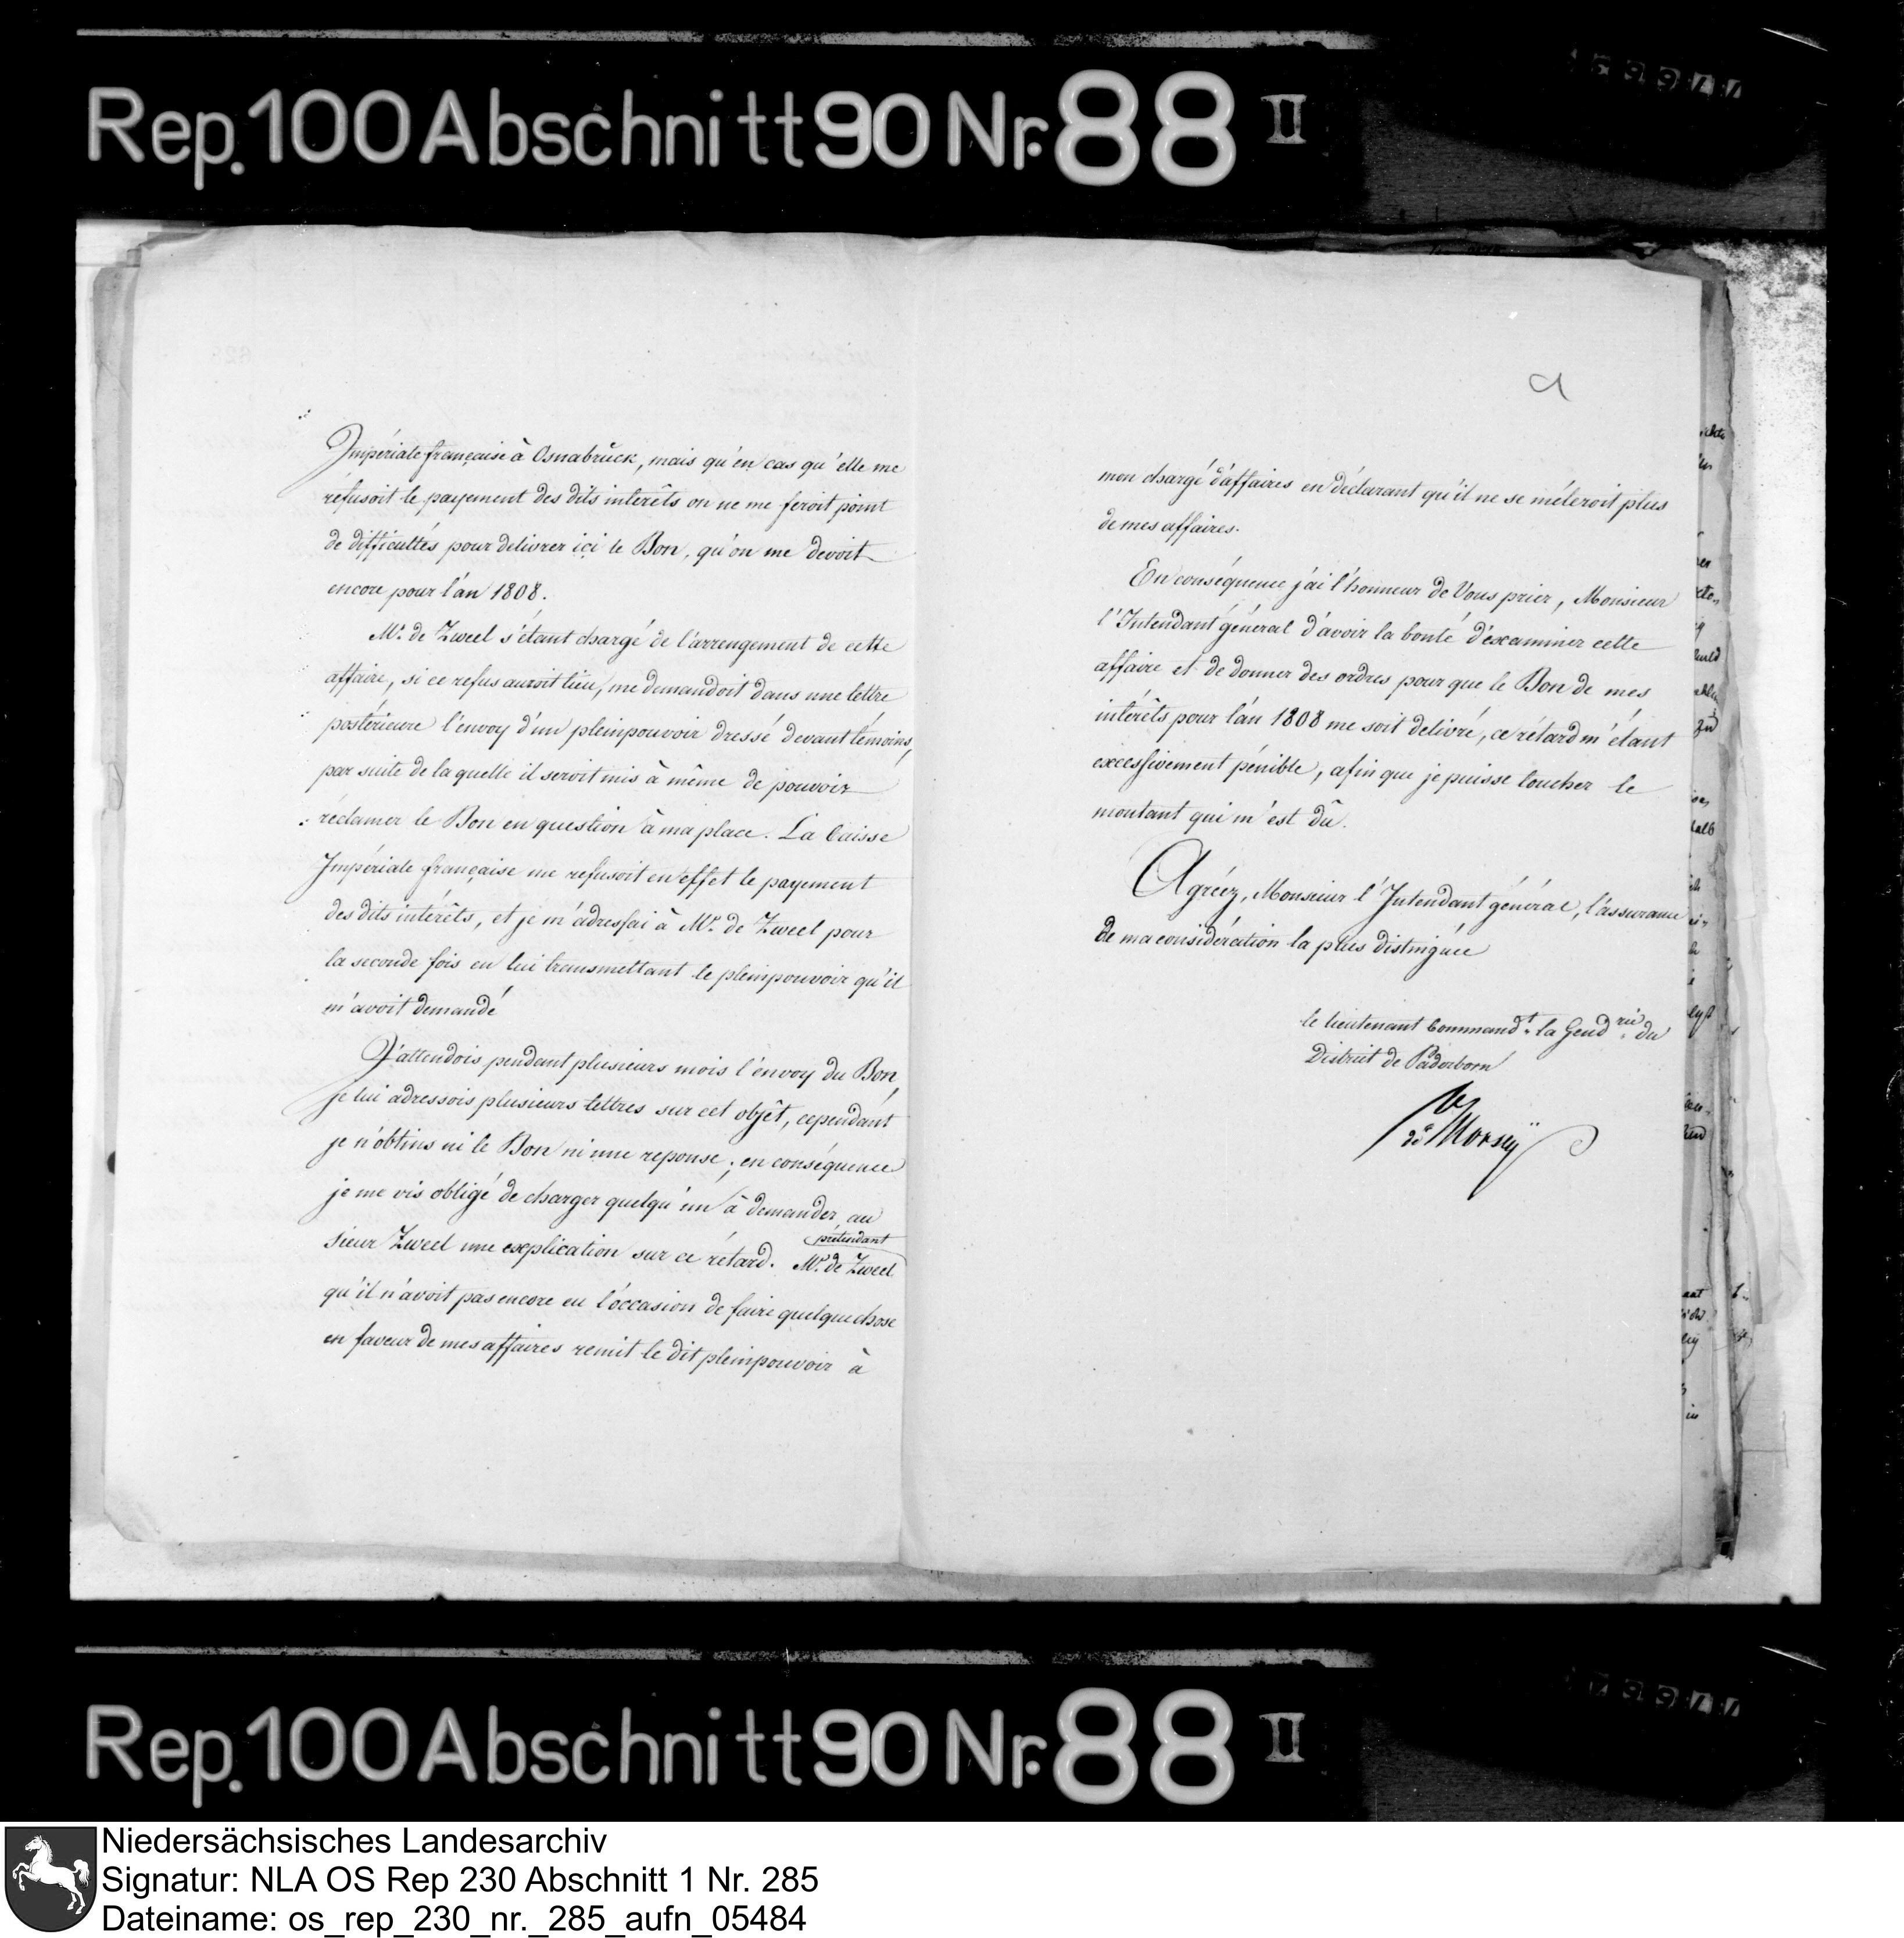 Rep. 100 Abschnitt 90 Nr. 88 II
Impériale française à Osnabrück, mais qu'en cas qu'elle me
réfusoit le payement des dits interêts on ne me feroit point
de difficultés pour delivrer içi le Bon, qu'on me devoit
encore pour l'an 1808.
Mr. de Zweel s'étant chargé de l'arrengement de cette
affaire, si ce refus auroit lieu, me demandoit dans une lettre
postérieure l'envoy d'un pleinpouvoir dressé devant témoins,
par suite de laquelle il seroit mis à même de pouvoir
réclamer le Bon en question à ma place. La Caisse
Impériale française me refusoit en effet le payement
des dits intérêts, et je m'adressai à Mr. de Zweel pour
la seconde fois en lui transmettant le pleinpouvoir qu'il
m'avoit demandé
J'attendois pendant plusieurs mois l'envoy du Bon,
je lui adressois plusieurs lettres sur cet objêt, cependant
je n'obtins ni le Bon ni une reponse; en conséquence
je me vis obligé de charger quelqu'un à demander au
sieur Zweel une explication sur ce rétard. Mr. de Zweel
prétendant
qu'il n'avoit pas encore eu l'occasion de faire quelque chose
en faveur de mes affaires remit le dit pleinpouvoir à
mon chargé d'affaires en déclarant qu'il ne se mêleroit plus
de mes affaires.
En conséquence j'ai l'honneur de Vous prier, Monsieur
l'Intendant général d'avoir la bonté d'examiner cette
affaire et de donner des ordres pour que le Bon de mes
intérêts pour l'an 1808 me soit delivré, ce rétard m'étant
excessivement pénible, afin que je puisse toucher le
montant qui m'est dû.
Agréez, Monsieur l'Intendant général, l'assurance
de ma considération la plus distinguée
le lieutenant Commandt. la Gendrie. du
District de Paderborn
de Morseÿ
Rep. 100 Abschnitt 90 Nr. 88 II
Niedersächsisches Landesarchiv
Signatur: NLA OS Rep 230 Abschnitt 1 Nr. 285
Dateiname: os_rep_230_nr._285_aufn_05484